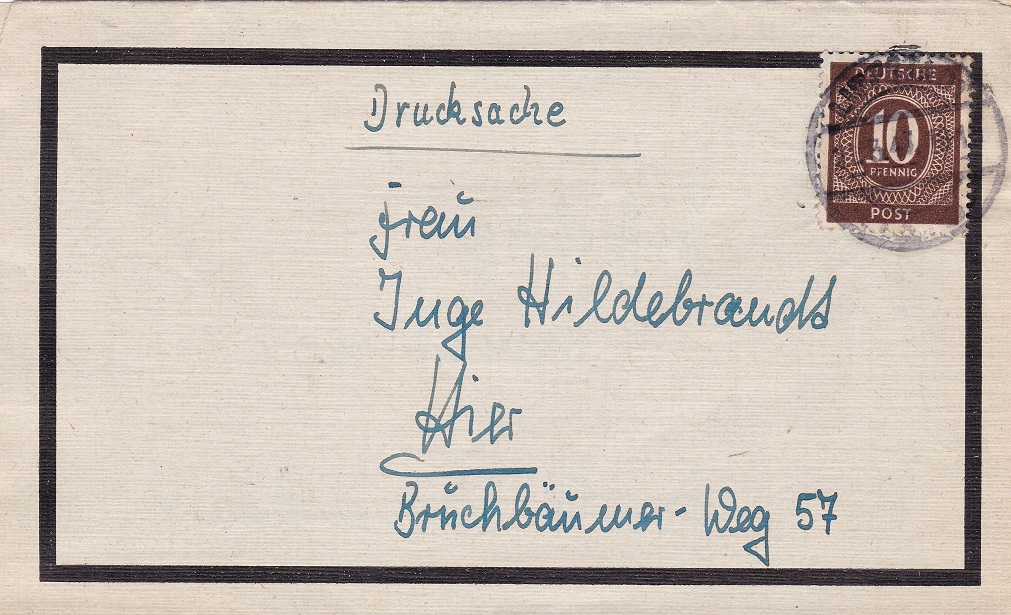 Drucksache
DEUTSCHE
10
PFENNIG
POST
Frau
Inge Hildebrandt
Hier
Bruchbäumer-Weg 57